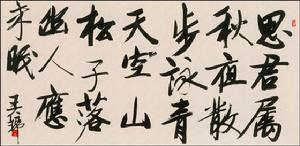 思君属
秋夜散
步詠青
天空山
松子落
幽人應
未眠